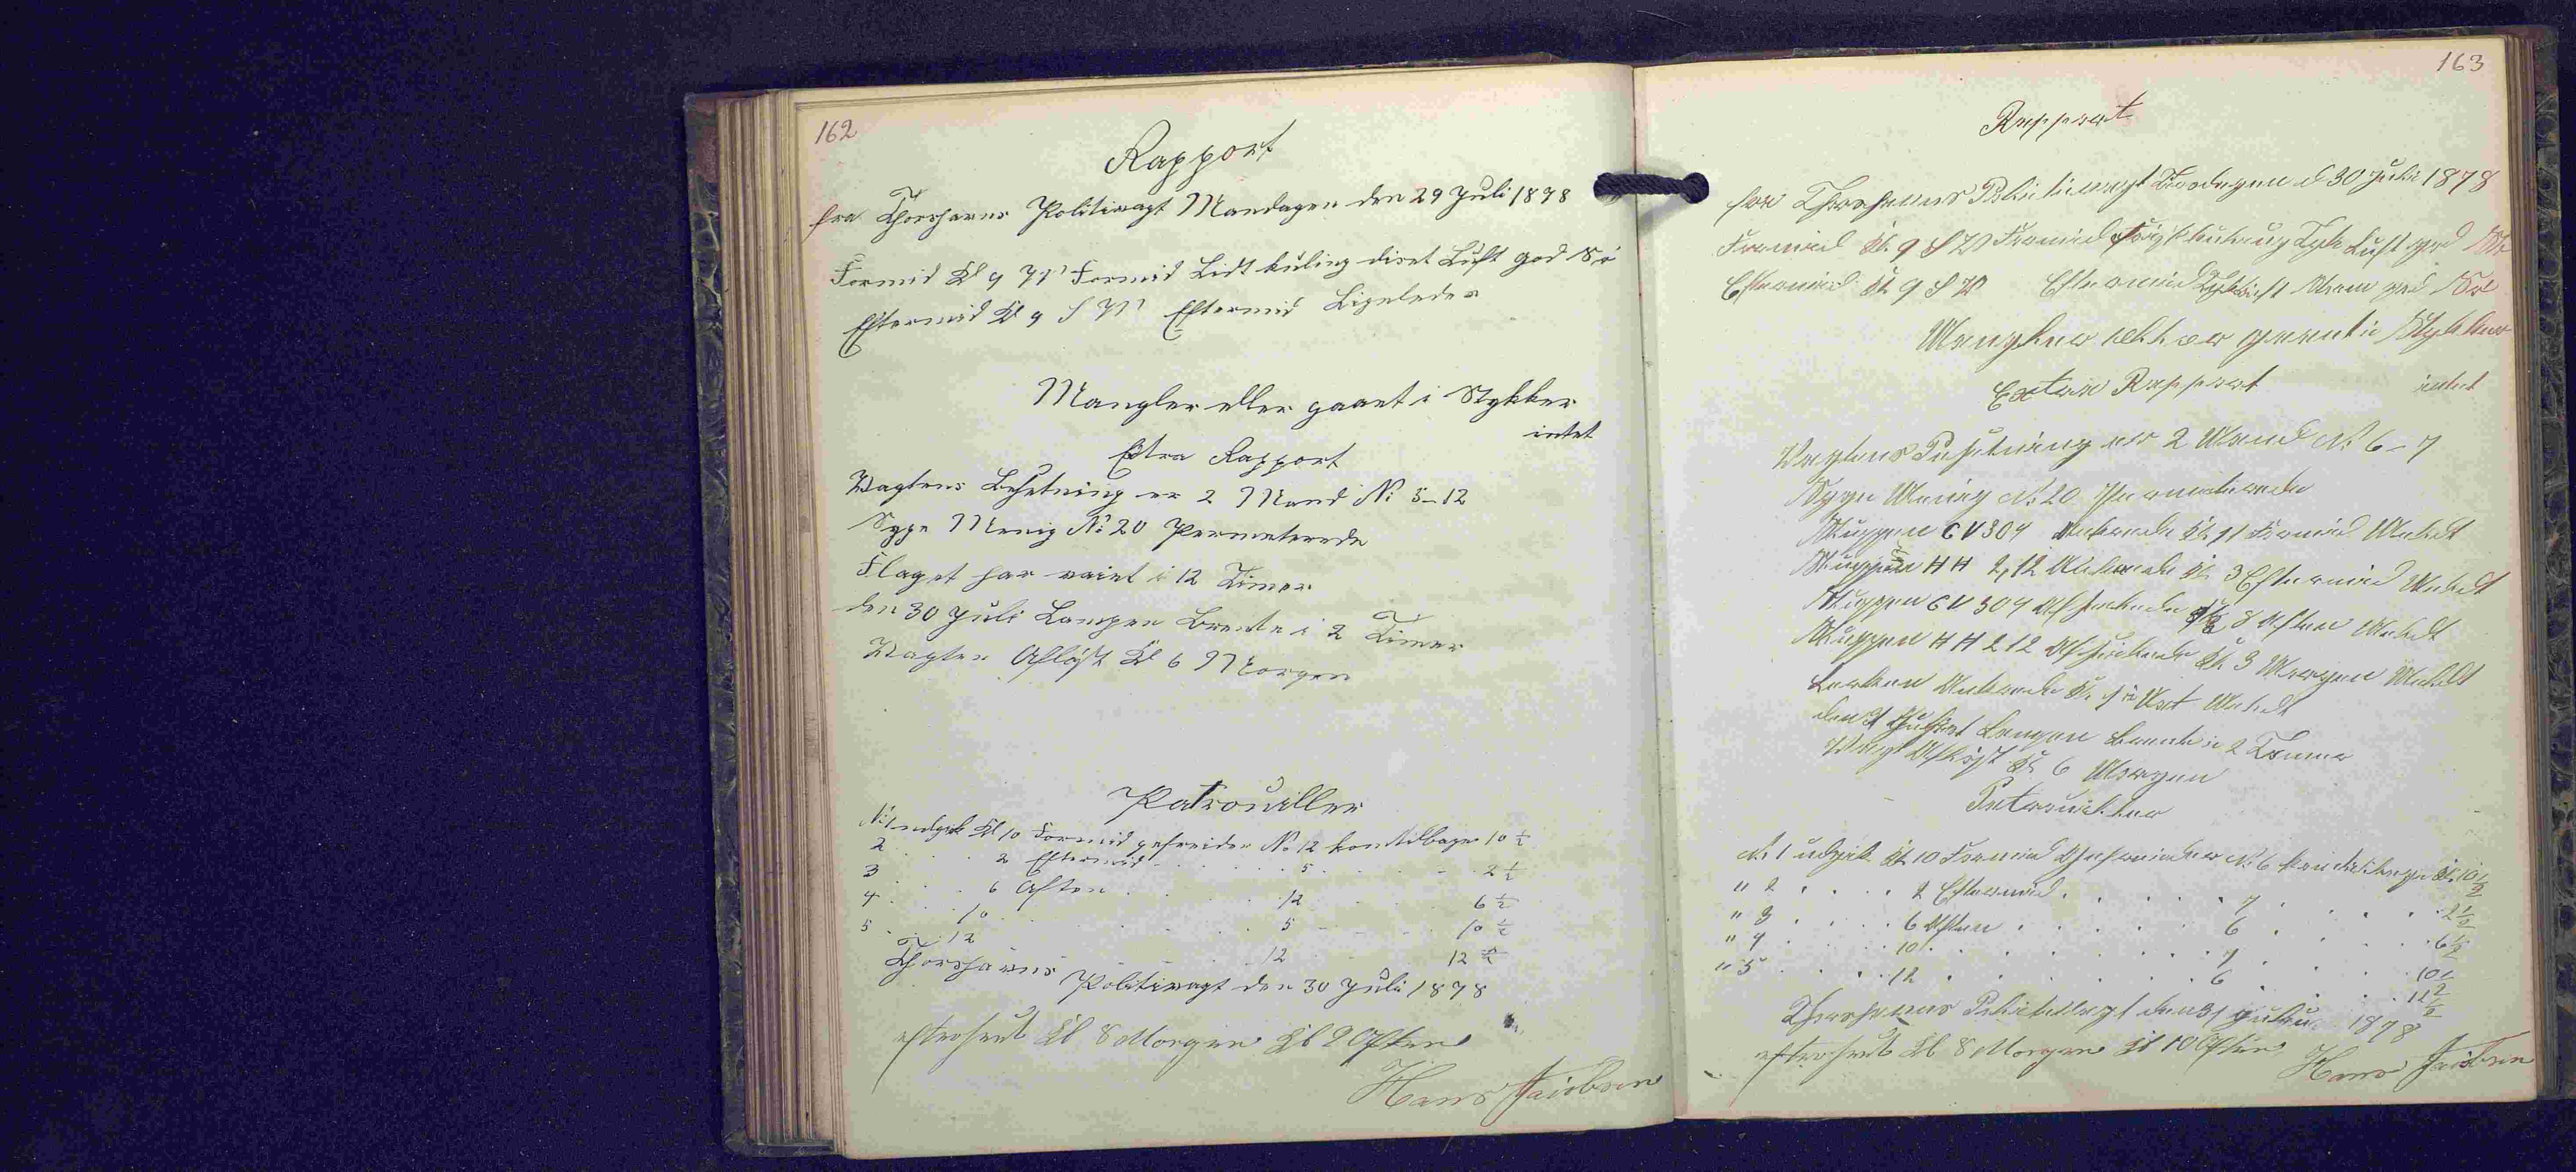 162
Rapport
fra Thorshavns Politivagt Mandagen den 29 Juli 1878
Formid Kl 9 W Formid Lidt kuling diset Luft god Sö
Eftermid Kl 9 S W Eftermid Ligeledes
Mangler eller gaaet i Stykker
intet
Extra Rapport
Vagtens Besetning er 2 Mand No 5-12
Syge Menig No 20 Permeterede
Flaget har vaiet i 12 Timer
den 30 Juli Lampen Brente i 2 Timer
Vagten Aflöst Kl 6 Morgen
Patrouiller
No 1 udgik Kl 10 Formid gefreider No 12 kom tilbage 10 1/2
2 . . . 2 Eftermid . . . 5 . . . 2 1/2
3 . . . 6 Aften . . . 12 . . . 6 1/2
4 . . . 10 . . . 5 . . . 10 1/2
5 . . . 12 . . . 12 . . . 12 1/2
Thorshavns Politivagt den 30 Juli 1878
efterseet Kl 8 Morgen Kl 9 Aften
Hans Jacobsen
163
Rapport
fra Thorshavns Politivagt Tirsdagen d 30 Juli 1878
Formid Kl. 9 S W Formid Luft god Sö
Eftermid Kl 9 S W Eftermid god Sö
Mangler eller gaaet i Stykker
Extra Rapport intet
Vagtens Besetning er 2 Mand No 6-7
Syge Menig No 20 Permeterede
Sluppen CV 304 Ankrede Kl 11 Formid Meldt
Sluppen HH 212 Ankrede Kl 3 Eftermid Meldt
Sluppen CV 304 Afseilede Kl 8 Aften Meldt
Sluppen HH 212 Afseilede Kl 3 Morgen Meldt
Ankrede Kl Meldt
Lampen Brente i 2 Timer
Vagt Aflöst Kl 6 Morgen
Patrouiller
No 1 udgik Kl 10 Formid Gefreider No 6 kom tilbage Kl. 10 1/2
" 2 . . . 2 Eftermid . . . 7 . . . 2 1/2
" 3 . . . 6 Aften . . . 6 . . . 6 1/2
" 4 . . . 10 . . . 7 . . . 10 1/2
" 5 . . . 12 . . . 6 . . . 12 1/2
Thorshavns Politivagt den 31 Juli 1878
efterseet Kl 8 Morgen Kl 10 Aften
Hans Jacobsen